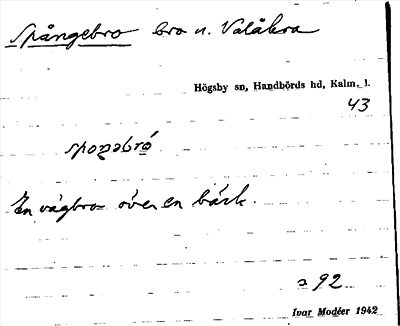 Spångebro bro n. Valåkra
Högsby sn, Handbörds hd, Kalm. l.
43
spoŋəbró
En vägbro över en bäck.
92
Ivar Modéer 1942